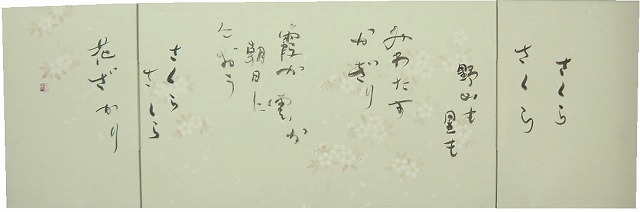 さくら
さくら
野山も
里も
みわたす
かぎり
霞か雲か
朝日に
におう
さくら
さくら
花ざかり